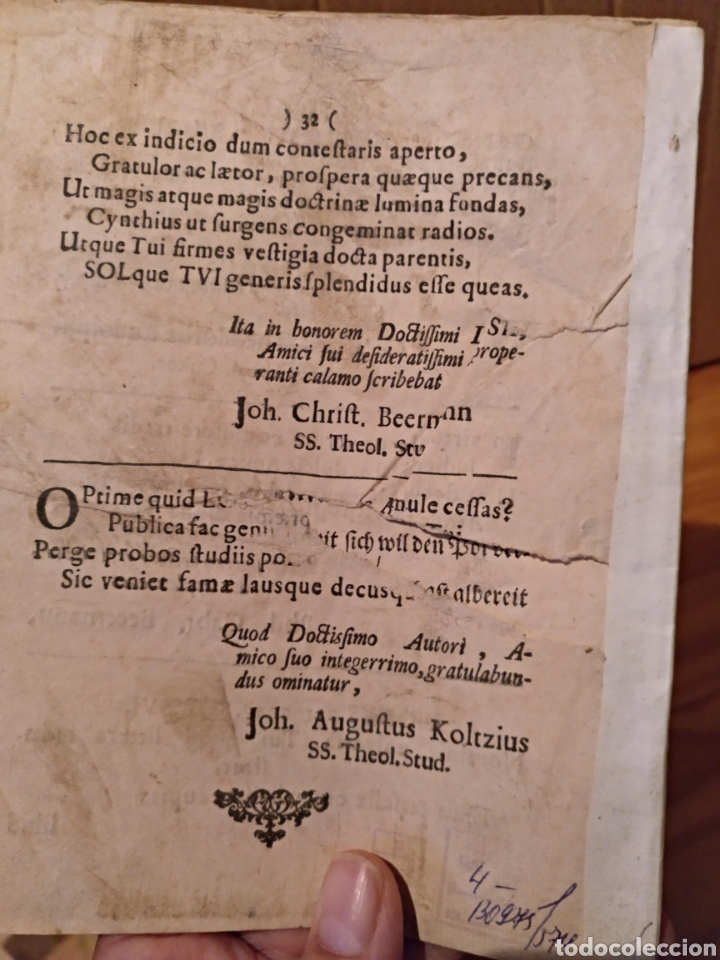 ) 32 (
Hoc ex indicio dum conteſtaris aperto,
Gratulor ac lætor, proſpera quæque precans,
Ut magis atque magis doctrinæ lumina fundas,
Cynthius ut ſurgens congeminat radios.
Utque Tui firmes veſtigia docta parentis,
SOLque TVI generis ſplendidus eſſe queas.
Ita in honorem Doctiſſimi
Amici ſui deſideratiſſimi prope-
ranti calamo ſcribebat
Joh. Chriſt. Beerman
SS. Theol.
OPtime quid ceſſas?
Publica fac ſich wil den
Perge probos ſtudiis
Sic veniet famæ lausque albereit
Quod Doctisſimo Autori, A-
mico ſuo integerrimo, gratulabun-
dus ominatur,
Joh. Auguſtus Koltzius
SS. Theol. Stud.
4 –
todocoleccion.net